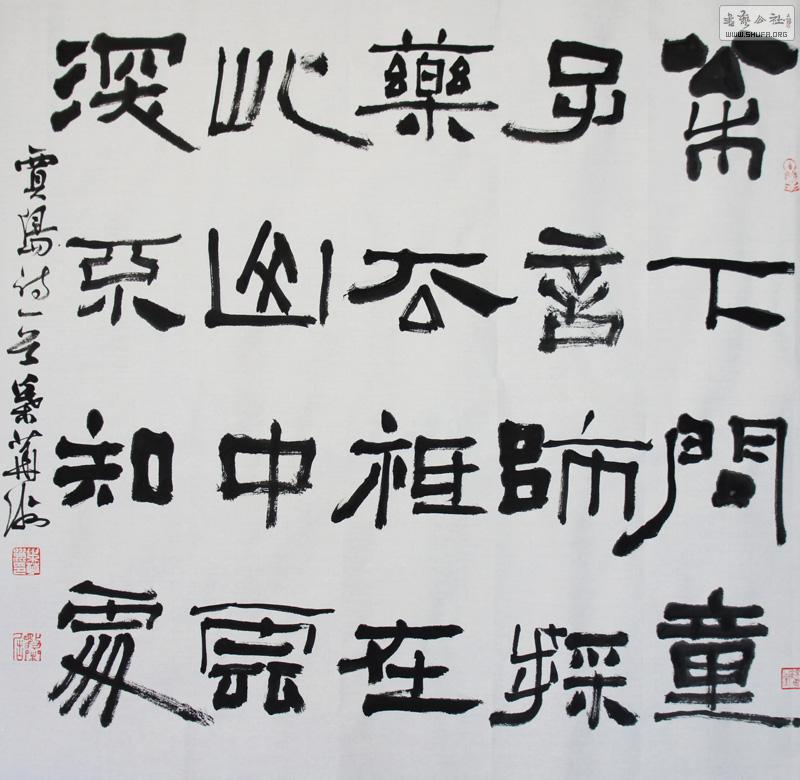 枀下問童
子言師採
藥去祇在
此山中雲
深不知處
賈島詩一首
书艺公社
WWW.SHUFA.ORG